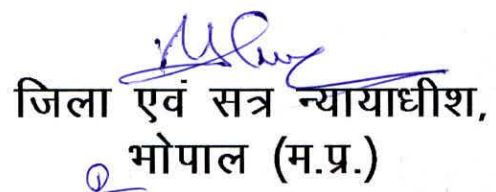 जिला एवं सत्र न्यायाधीश,
भोपाल (म.प्र.)